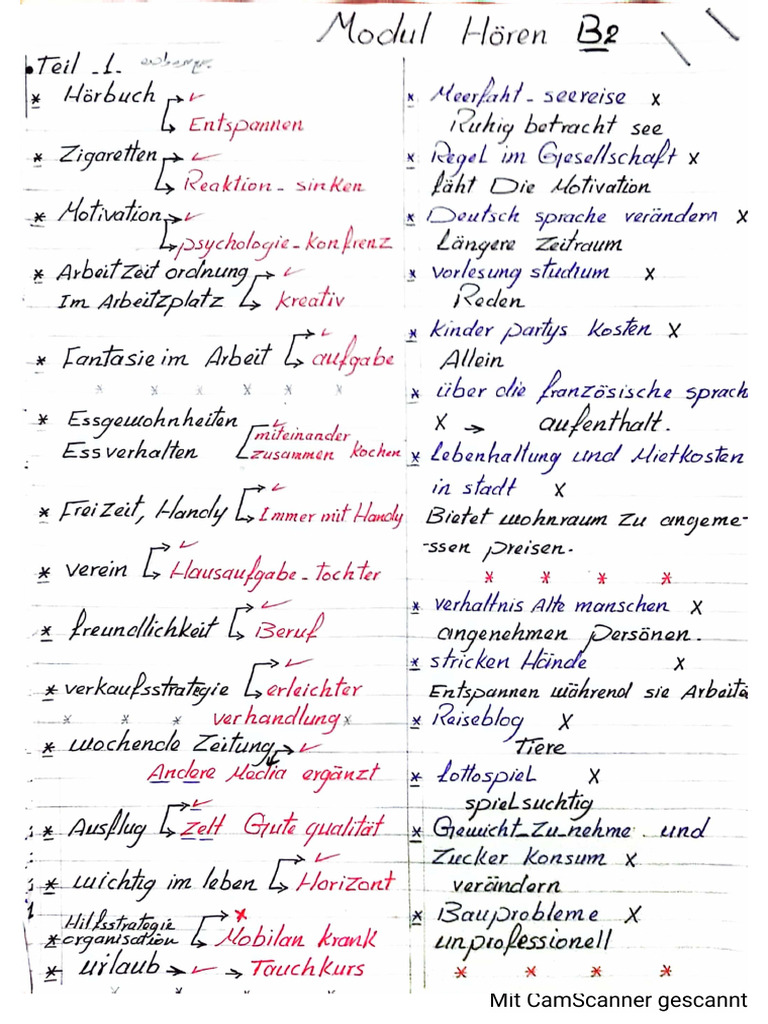 Modul Hören B2
• Teil -1-
* Hörbuch → ✓
↳ Entspannen
* Zigaretten → ✓
↳ Reaktion - sinken
* Motivation → ✓
↳ psychologie - konfrenz
* Arbeitzeit ordnung → ✓
Im Arbeitzplatz ↳ kreativ
* Fantasie im Arbeit → ✓ ↳ aufgabe
* * * * * *
* Essgewohnheiten ✓
miteinander
Essverhalten zusammen kochen
* Freizeit, Handy → ✓ ↳ Immer mit Handy
* verein → ✓ ↳ Hausaufgabe - tochter
* freundlichkeit → ✓ ↳ Beruf
* verkaufsstrategie → ✓ ↳ erleichter
* * * verhandlung *
* wochende Zeitung → ✓
Andere Media ergänzt
* Ausflug → ✓ ↳ Zelt Gute qualität
* wichtig im leben → ✓ ↳ Horizont
Hilfsstrategie → x
* organisation ↳ Mobilan krank
* urlaub → ✓ → Tauchkurs
* Meerfaht - seereise x
Ruhig betracht see
* Regel im Gesellschaft x
fäht Die Motivation
* Deutsch sprache verändern x
Längere Zeitraum
* vorlesung studium x
Reden
* kinder partys kosten x
Allein
* über die französische sprach
x → aufenthalt.
* Lebenhaltung und Mietkosten
in stadt x
Bietet wohnraum zu angeme-
-ssen preisen.
* * * *
* verhaltnis Alte manschen x
angenehmen persönen.
* stricken Hände x
Entspannen während sie Arbeite
* Reiseblog x
Tiere
* lottospiel x
spielsuchtig
* Gewicht_Zu_nehme. und
Zucker konsum x
verändern
* Bauprobleme x
unprofessionell
* * * *
Mit CamScanner gescannt